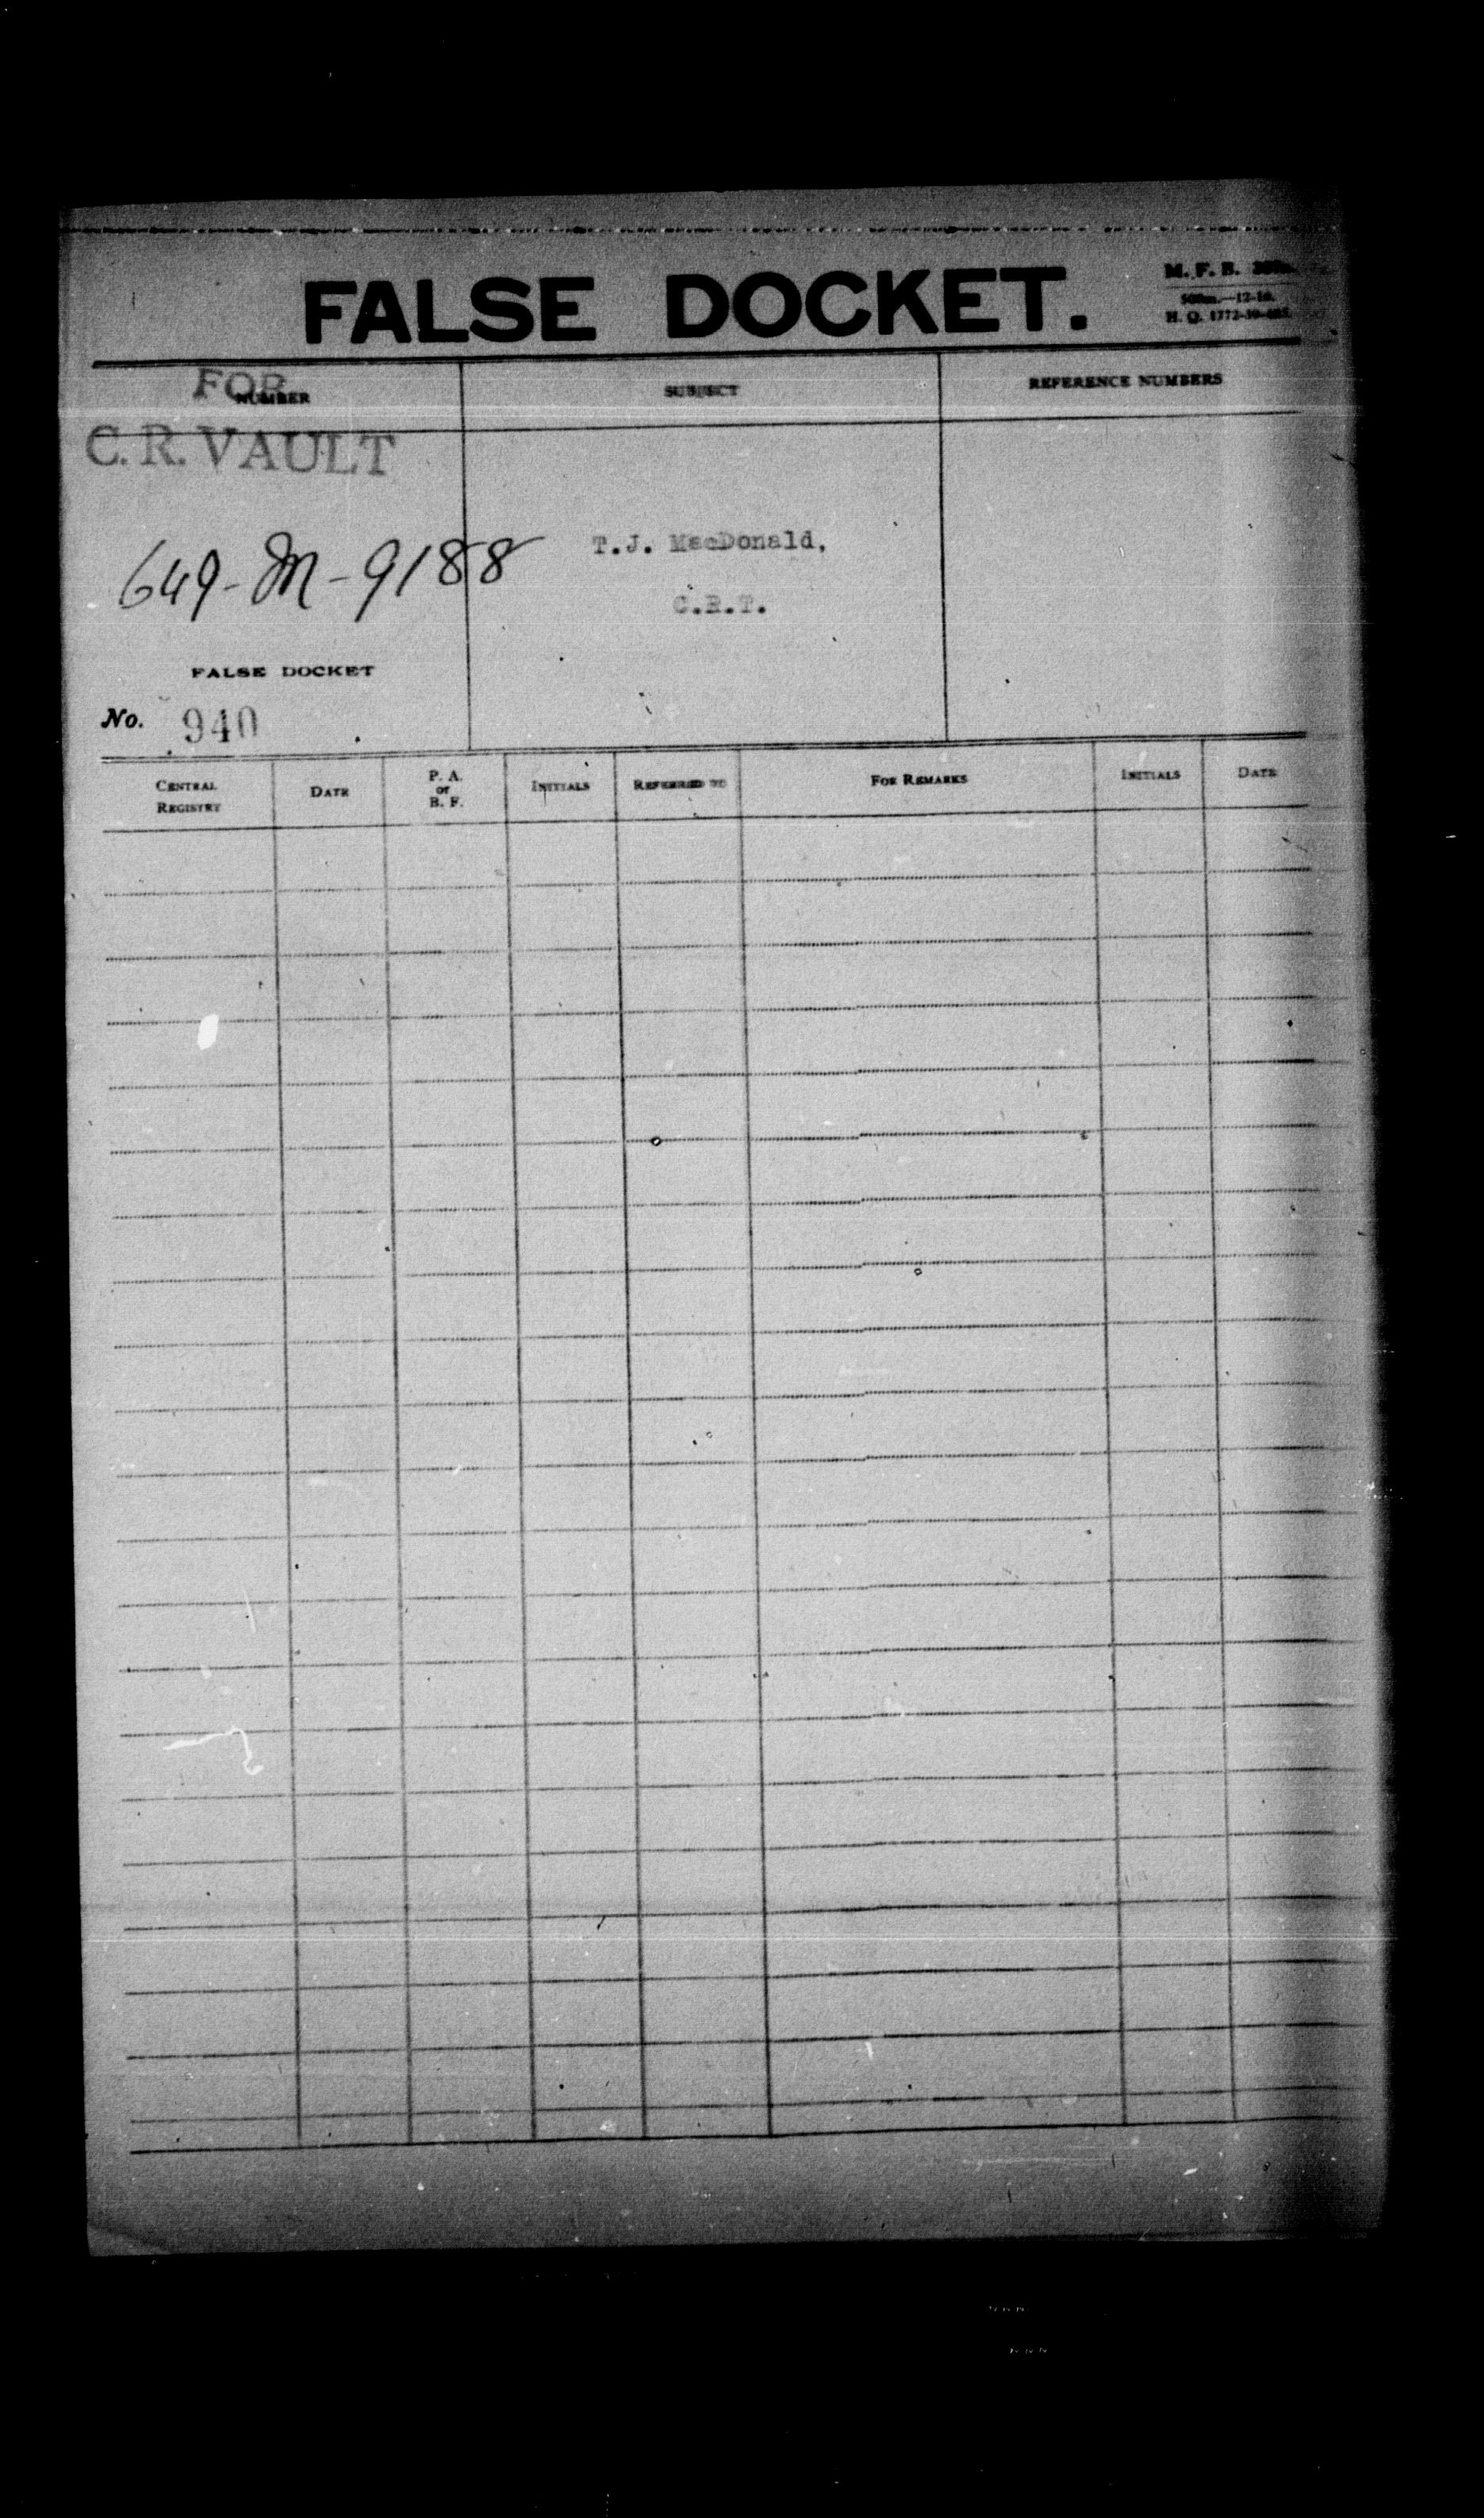 FALSE DOCKET.
M. F. B.
500m.—12-16.
H. Q. 1772-39-
FOR
NUMBER
SUBJECT
REFERENCE NUMBERS
C. R. VAULT
649-M-9188
T.J. MacDonald,
C.R.T.
FALSE DOCKET
No. 940
CENTRAL REGISTRY
DATE
P. A. or B. F.
INITIALS
REFERRED TO
FOR REMARKS
INITIALS
DATE